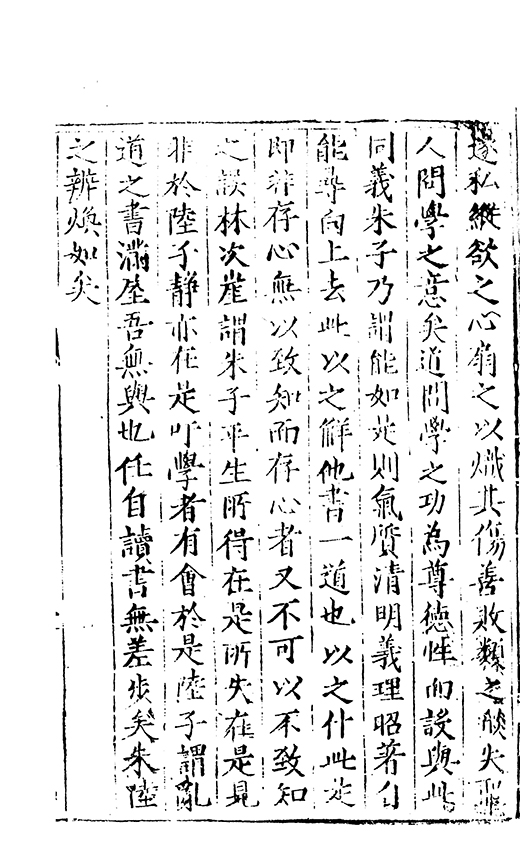 遂私縱欲之心扇之以熾其傷善敗類之　失聖
人問學之意矣道問學之功為尊德性而設與此
同義朱子乃謂能如是則氣質清明義理昭著自
能尋向上去此以之解他書一道也以之什此是
即非存心無以致知而存心者又不可以不致知
之誤林次崖謂朱子平生所得在是所失在是見
非於陸子靜亦在是吁學者有會於是陸子謂亂
道之書滿座吾無與也任自讀書無差步矣朱陸
之辨煥如矣